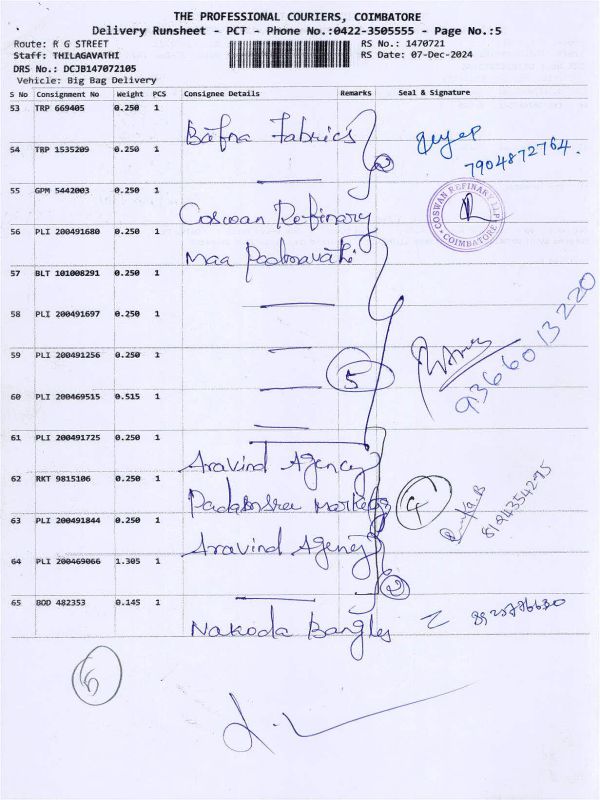 THE PROFESSIONAL COURIERS, COIMBATORE
Delivery Runsheet - PCT - Phone No.:0422-3505555 - Page No.:5
Route: R G STREET RS No.: 1470721
Staff: THILAGAVATHI RS Date: 07-Dec-2024
DRS No.: DCJB147072105
Vehicle: Big Bag Delivery
S No Consignment No Weight PCS Consignee Details Remarks Seal & Signature
53 TRP 669405 0.250 1
Bafna Fabrics
54 TRP 1535209 0.250 1 2
7904872764.
55 GPM 5442003 0.250 1
Coswan Refinary COSWAN REFINARY LLP COIMBATORE
56 PLI 200491680 0.250 1
Maa Padmavathi
57 BLT 101008291 0.250 1
58 PLI 200491697 0.250 1
9366013220
59 PLI 200491256 0.250 1
5
60 PLI 200469515 0.515 1
61 PLI 200491725 0.250 1
Aravind Agency
62 RKT 9815106 0.250 1
4
63 PLI 200491844 0.250 1
Aravind Agency
64 PLI 200469066 1.305 1
2
65 BOD 482353 0.145 1
Nakoda Bangles
5